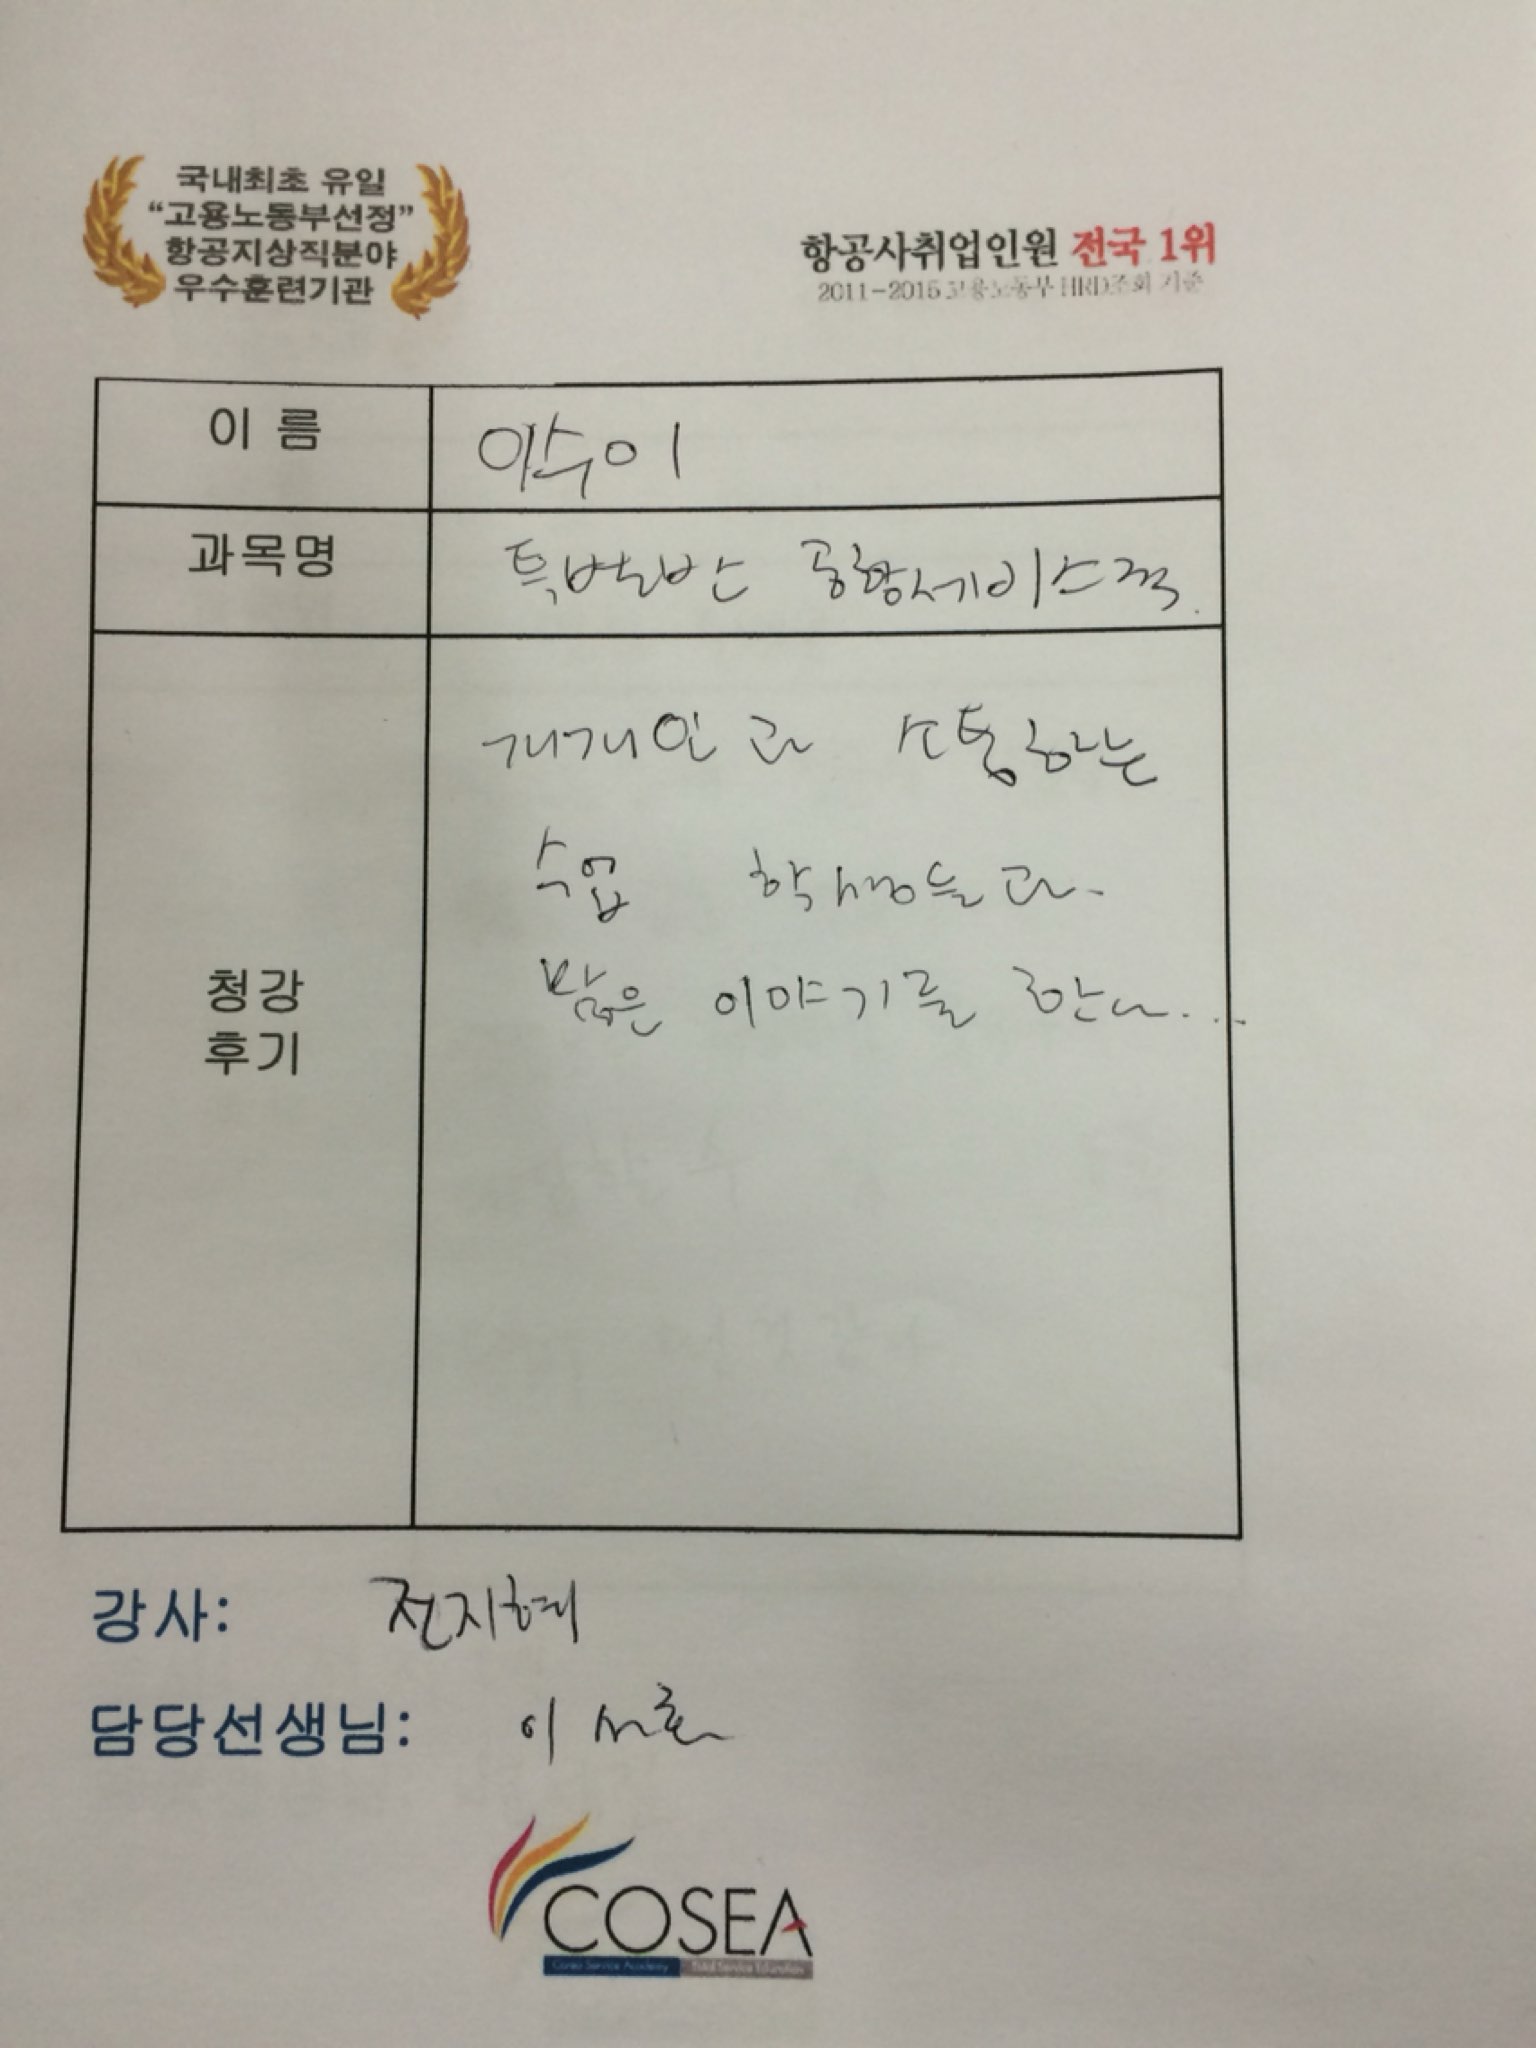 국내최초 유일
“고용노동부선정”
항공지상직분야
우수훈련기관
항공사취업인원 전국 1위
2011-2015 고용노동부 HRD조회 기준
이 름
과목명
특별반 공항서비스직.
개개인과 소통하는
수업 학생들과.
많은 이야기를 한다...
청강
후기
강사: 전지혜
담당선생님: 이서훈
COSEA
Corea Service Academy Total Service Education